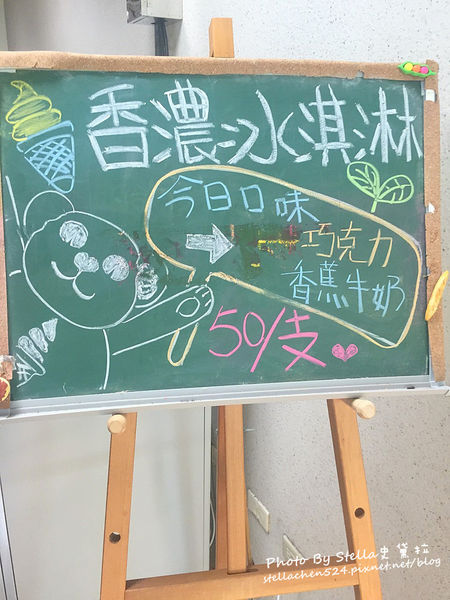 香濃冰淇淋
今日口味
巧克力
香蕉牛奶
50/支
Photo By Stella史黛拉
stellachen524.pixnet.net/blog